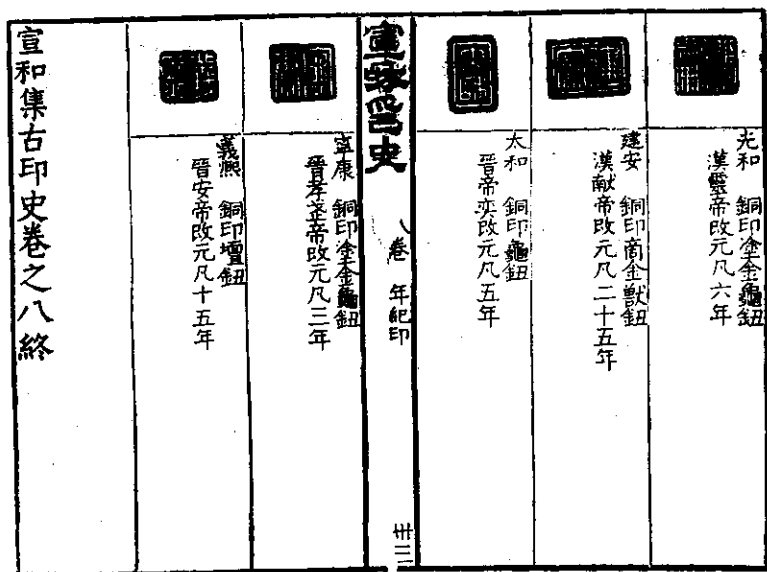 光和　銅印塗金龜鈕
漢靈帝改元凡六年
建安　銅印商金獸鈕
漢献帝改元凡二十五年
太和　銅印龜鈕
晉帝奕改元凡五年
宣龢印史
八卷　年紀印
卅二
寧康　銅印塗金龜鈕
晉孝武帝改元凡三年
義熙　銅印壇鈕
晉安帝改元凡十五年
宣和集古印史卷之八終